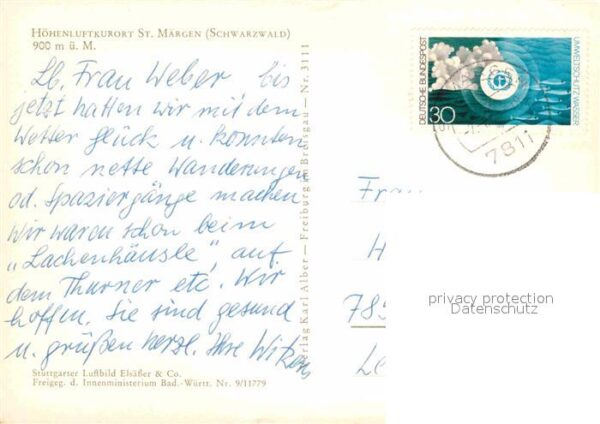 HÖHENLUFTKURORT ST. MÄRGEN (SCHWARZWALD)
900 m ü. M.
Lb. Frau Weber bis
jetzt hatten wir mit dem
Wetter Glück u. konnten
schon nette Wanderungen
od. Spaziergänge machen
Wir waren schon beim
„Lachenhäusle", auf
dem Thurner etc. Wir
hoffen, Sie sind gesund
u. grüßen herzl. Ihre
Stuttgarter Luftbild Elsäßer & Co.
Freigeg. d. Innenministerium Bad.-Württ. Nr. 9/11779
Verlag Karl Alber — Freiburg im Breisgau — Nr. 3111
DEUTSCHE BUNDESPOST
30
UMWELTSCHUTZ: WASSER
7811
Frau
H
785
Le
privacy protection
Datenschutz